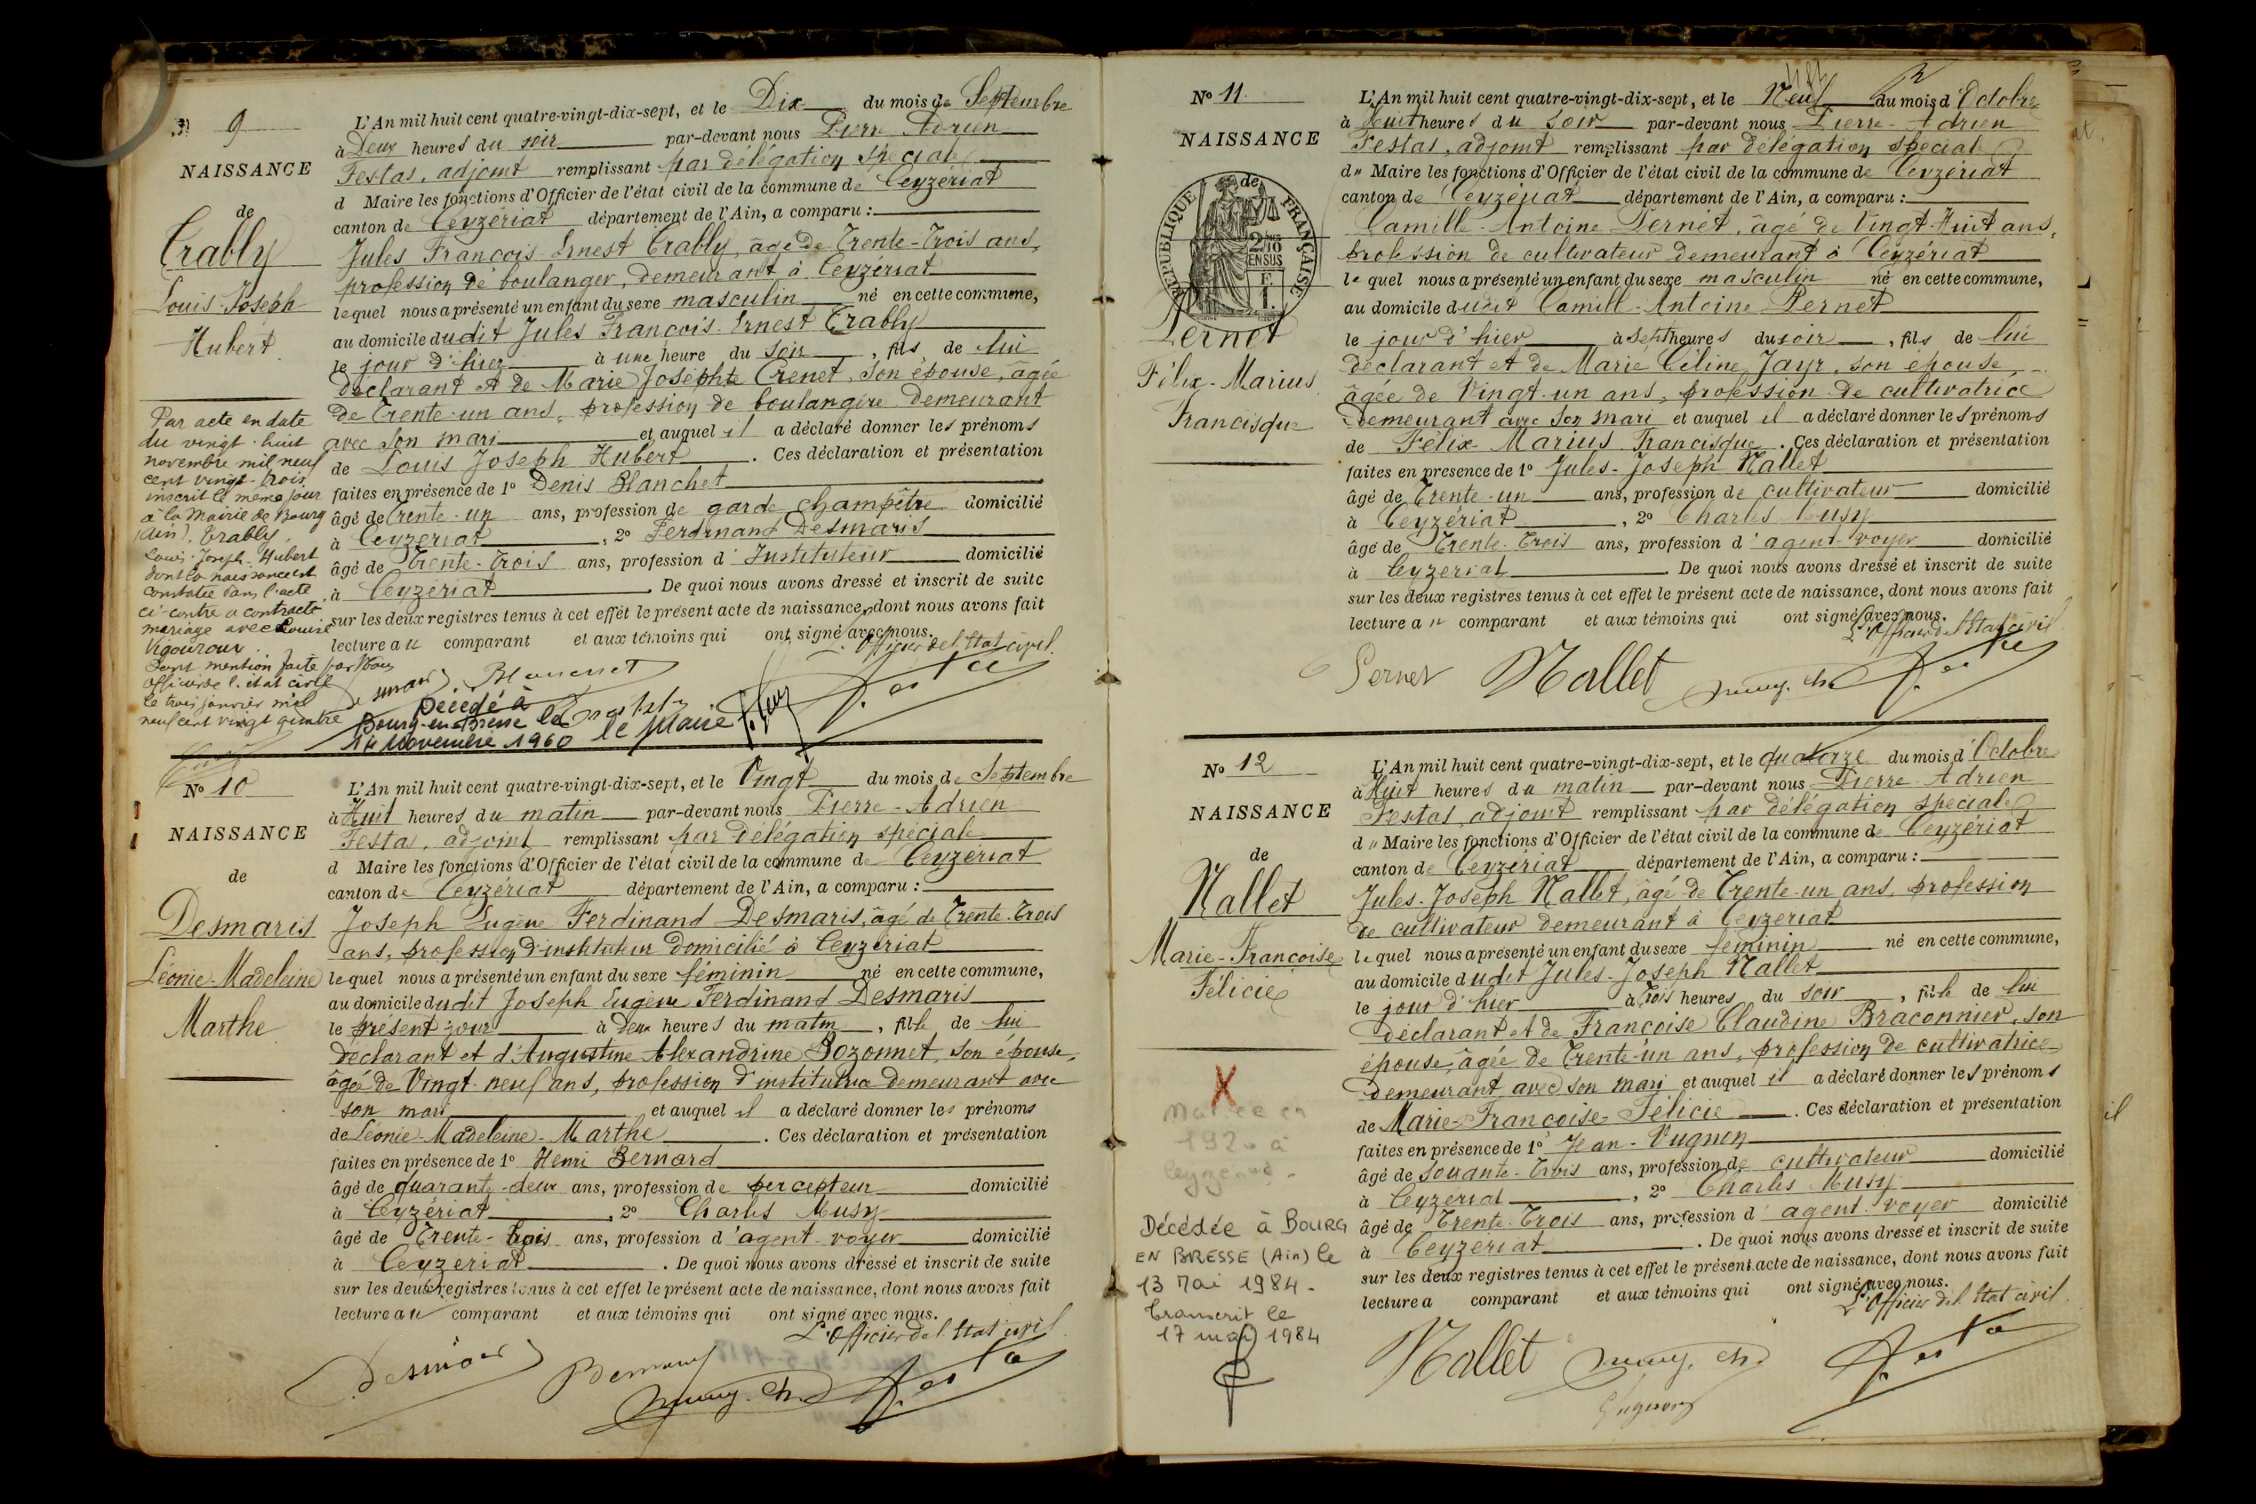 9
NAISSANCE
de
Trably
Louis-Joseph
Hubert
L'An mil huit cent quatre-vingt-dix-sept, et le Dix du mois de Septembre
à Deux heures du soir par-devant nous Pierre Adrien
Festas, adjoint remplissant par délégation spéciale
d Maire les fonctions d'Officier de l'état civil de la commune de Ceyzériat
canton de Ceyzériat département de l'Ain, a comparu :
Jules François Ernest Trably, âgé de Trente-Trois ans,
profession de boulanger, demeurant à Ceyzériat
lequel nous a présenté un enfant du sexe masculin né en cette commune,
au domicile dudit Jules François Ernest Trably
le jour d'hier à une heure du soir, fils de lui
déclarant et de Marie Josephte Crenet, son épouse, agée
de Trente-un ans, profession de boulangère demeurant
avec son mari et auquel il a déclaré donner les prénoms
de Louis Joseph Hubert. Ces déclaration et présentation
faites en présence de 1° Denis Blanchet
âgé de Trente-un ans, profession de garde champêtre domicilié
à Ceyzériat, 2° Ferdinand Desmaris
âgé de Trente-Trois ans, profession d'Instituteur domicilié
à Ceyzériat. De quoi nous avons dressé et inscrit de suite
sur les deux registres tenus à cet effet le présent acte de naissance, dont nous avons fait
lecture au comparant et aux témoins qui ont signé avec nous.
L'Officier de l'Etat civil
Par acte en date
du vingt-huit
novembre mil neuf
cent vingt-trois
inscrit le même jour
à la Mairie de Bourg
(Ain), Trably
Louis-Joseph-Hubert
dont la naissance est
constatée dans l'acte
ci-contre a contracté
mariage avec Louise
Vigouroux.
Dont mention faite par Nous
officier de l'état civil
le trois janvier mil
neuf cent vingt quatre
Blanchet
Festas
Décédé à
Bourg-en-Bresse le
14 Novembre 1960 le Maire
N° 10
NAISSANCE
de
Desmaris
Léonie-Madeleine
Marthe
L'An mil huit cent quatre-vingt-dix-sept, et le Vingt du mois de Septembre
à Huit heures du matin par-devant nous Pierre-Adrien
Festas, adjoint remplissant par délégation spéciale
d Maire les fonctions d'Officier de l'état civil de la commune de Ceyzériat
canton de Ceyzériat département de l'Ain, a comparu :
Joseph Eugène Ferdinand Desmaris, âgé de Trente-Trois
ans, profession d'instituteur domicilié à Ceyzériat
lequel nous a présenté un enfant du sexe féminin né en cette commune,
au domicile dudit Joseph Eugène Ferdinand Desmaris
le présent jour à Deux heures du matin, fille de lui
déclarant et d'Augustine Alexandrine Bozonnet, son épouse,
âgée de Vingt-neuf ans, profession d'institutrice demeurant avec
son mari et auquel il a déclaré donner les prénoms
de Léonie-Madeleine-Marthe. Ces déclaration et présentation
faites en présence de 1° Henri Bernard
âgé de quarante-deux ans, profession de percepteur domicilié
à Ceyzériat, 2° Charles Musy
âgé de Trente-trois ans, profession d'agent-voyer domicilié
à Ceyzériat. De quoi nous avons dressé et inscrit de suite
sur les deux registres tenus à cet effet le présent acte de naissance, dont nous avons fait
lecture au comparant et aux témoins qui ont signé avec nous.
L'Officier de l'Etat civil
Desmaris Bernard
Musy. Ch. Festas
N° 11
NAISSANCE
de
RÉPUBLIQUE FRANÇAISE
2/10
EN SUS
Pernet
Félix-Marius
Francisque
L'An mil huit cent quatre-vingt-dix-sept, et le Neuf du mois d'Octobre
à heures du soir par-devant nous Pierre-Adrien
Festas, adjoint remplissant par délégation spéciale
d" Maire les fonctions d'Officier de l'état civil de la commune de Ceyzériat
canton de Ceyzériat département de l'Ain, a comparu :
Camille-Antoine Pernet, âgé de Vingt-Huit ans,
profession de cultivateur demeurant à Ceyzériat
lequel nous a présenté un enfant du sexe masculin né en cette commune,
au domicile dudit Camille-Antoine Pernet
le jour d'hier à sept heures du soir, fils de lui
déclarant et de Marie Céline Jayr, son épouse
âgée de Vingt-un ans, profession de cultivatrice
demeurant avec son mari et auquel il a déclaré donner les prénoms
de Félix-Marius Francisque. Ces déclaration et présentation
faites en présence de 1° Jules-Joseph Nallet
âgé de Trente-un ans, profession de cultivateur domicilié
à Ceyzériat, 2° Charles Musy
âgé de Trente-Trois ans, profession d'agent-voyer domicilié
à Ceyzériat De quoi nous avons dressé et inscrit de suite
sur les deux registres tenus à cet effet le présent acte de naissance, dont nous avons fait
lecture au comparant et aux témoins qui ont signé avec nous.
L'Officier de l'Etat civil
Pernet Nallet Musy. Ch. Festas
N° 12
NAISSANCE
de
Nallet
Marie-Françoise
Félicie
L'An mil huit cent quatre-vingt-dix-sept, et le quatorze du mois d'Octobre
à Huit heures du matin par-devant nous Pierre-Adrien
Festas, adjoint remplissant par délégation spéciale
d" Maire les fonctions d'Officier de l'état civil de la commune de Ceyzériat
canton de Ceyzériat département de l'Ain, a comparu :
Jules-Joseph Nallet, âgé de Trente-un ans, profession
de cultivateur demeurant à Ceyzériat
lequel nous a présenté un enfant du sexe féminin né en cette commune,
au domicile dudit Jules-Joseph Nallet
le jour d'hier à Trois heures du soir, fille de lui
déclarant et de Françoise Claudine Braconnier, son
épouse, âgée de Trente-un ans, profession de cultivatrice
demeurant avec son mari et auquel il a déclaré donner les prénoms
de Marie-Françoise-Félicie. Ces déclaration et présentation
faites en présence de 1° Jean-Vugnon
âgé de soixante-trois ans, profession de cultivateur domicilié
à Ceyzériat, 2° Charles Musy
âgé de Trente-Trois ans, profession d'agent-voyer domicilié
à Ceyzériat. De quoi nous avons dressé et inscrit de suite
sur les deux registres tenus à cet effet le présent acte de naissance, dont nous avons fait
lecture a comparant et aux témoins qui ont signé avec nous.
L'Officier de l'Etat civil
X
Mariée en
192 à
Ceyzériat
Décédée à BOURG
EN BRESSE (Ain) le
13 Mai 1984.
Transcrit le
17 mai 1984
Nallet Musy. Ch. Festas
Vugnon